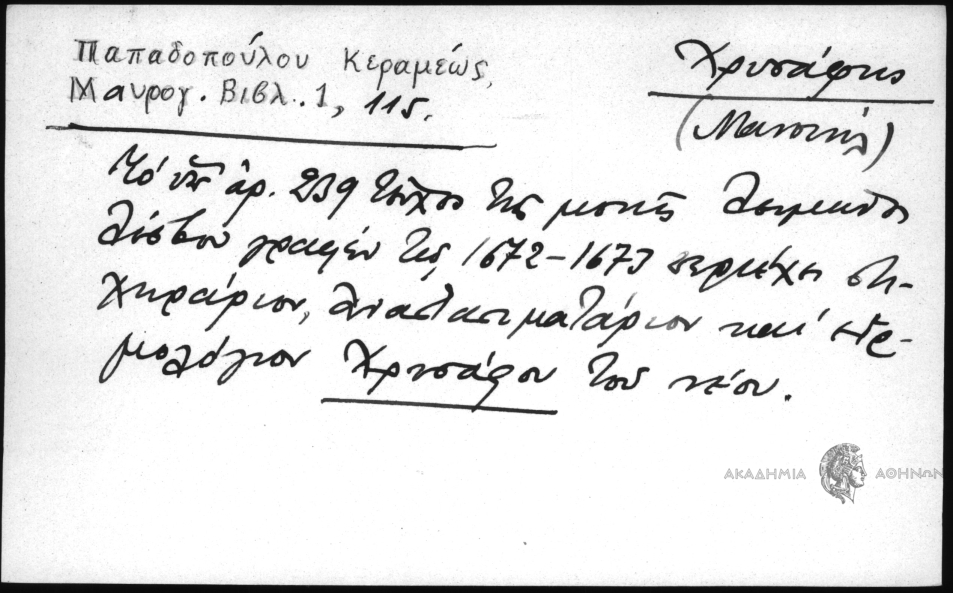 Παπαδοπούλου Κεραμέως,
Μαυρογ. Βιβλ. 1, 115.
Χρυσάφης
(Μανουήλ)
Τό ὑπ' ἀρ. 239 τεῦχος τῆς μονῆς Λειμῶνος
Λέσβου γραφέν τῷ 1672-1673 περιέχει στι-
χηράριον, Ἀναστασιματάριον καί εἱρ-
μολόγιον Χρυσάφου τοῦ νέου.
ΑΚΑΔΗΜΙΑ ΑΘΗΝΩΝ